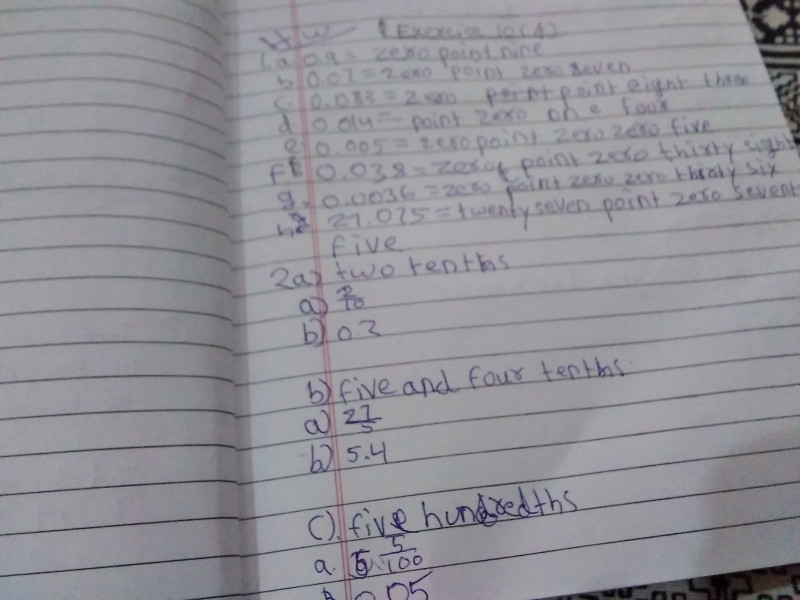 H.W Exercise 10(A)
1a 0.9 = zero point nine
b 0.07 = zero point zero seven
c. 0.083 = zero point point eight three
d 0.014 = point zero one four
e. 0.005 = zero point zero zero five
f 0.038 = zero point zero thirty eight
g. 0.0036 = zero point zero zero thirty six
h. 27.075 = twenty seven point zero seventy
five
2a) two tenths
a) 2/10
b) 0.2
b) five and four tenths
a) 27/5
b) 5.4
c). five hundredths
a. 5/100
b 0.05